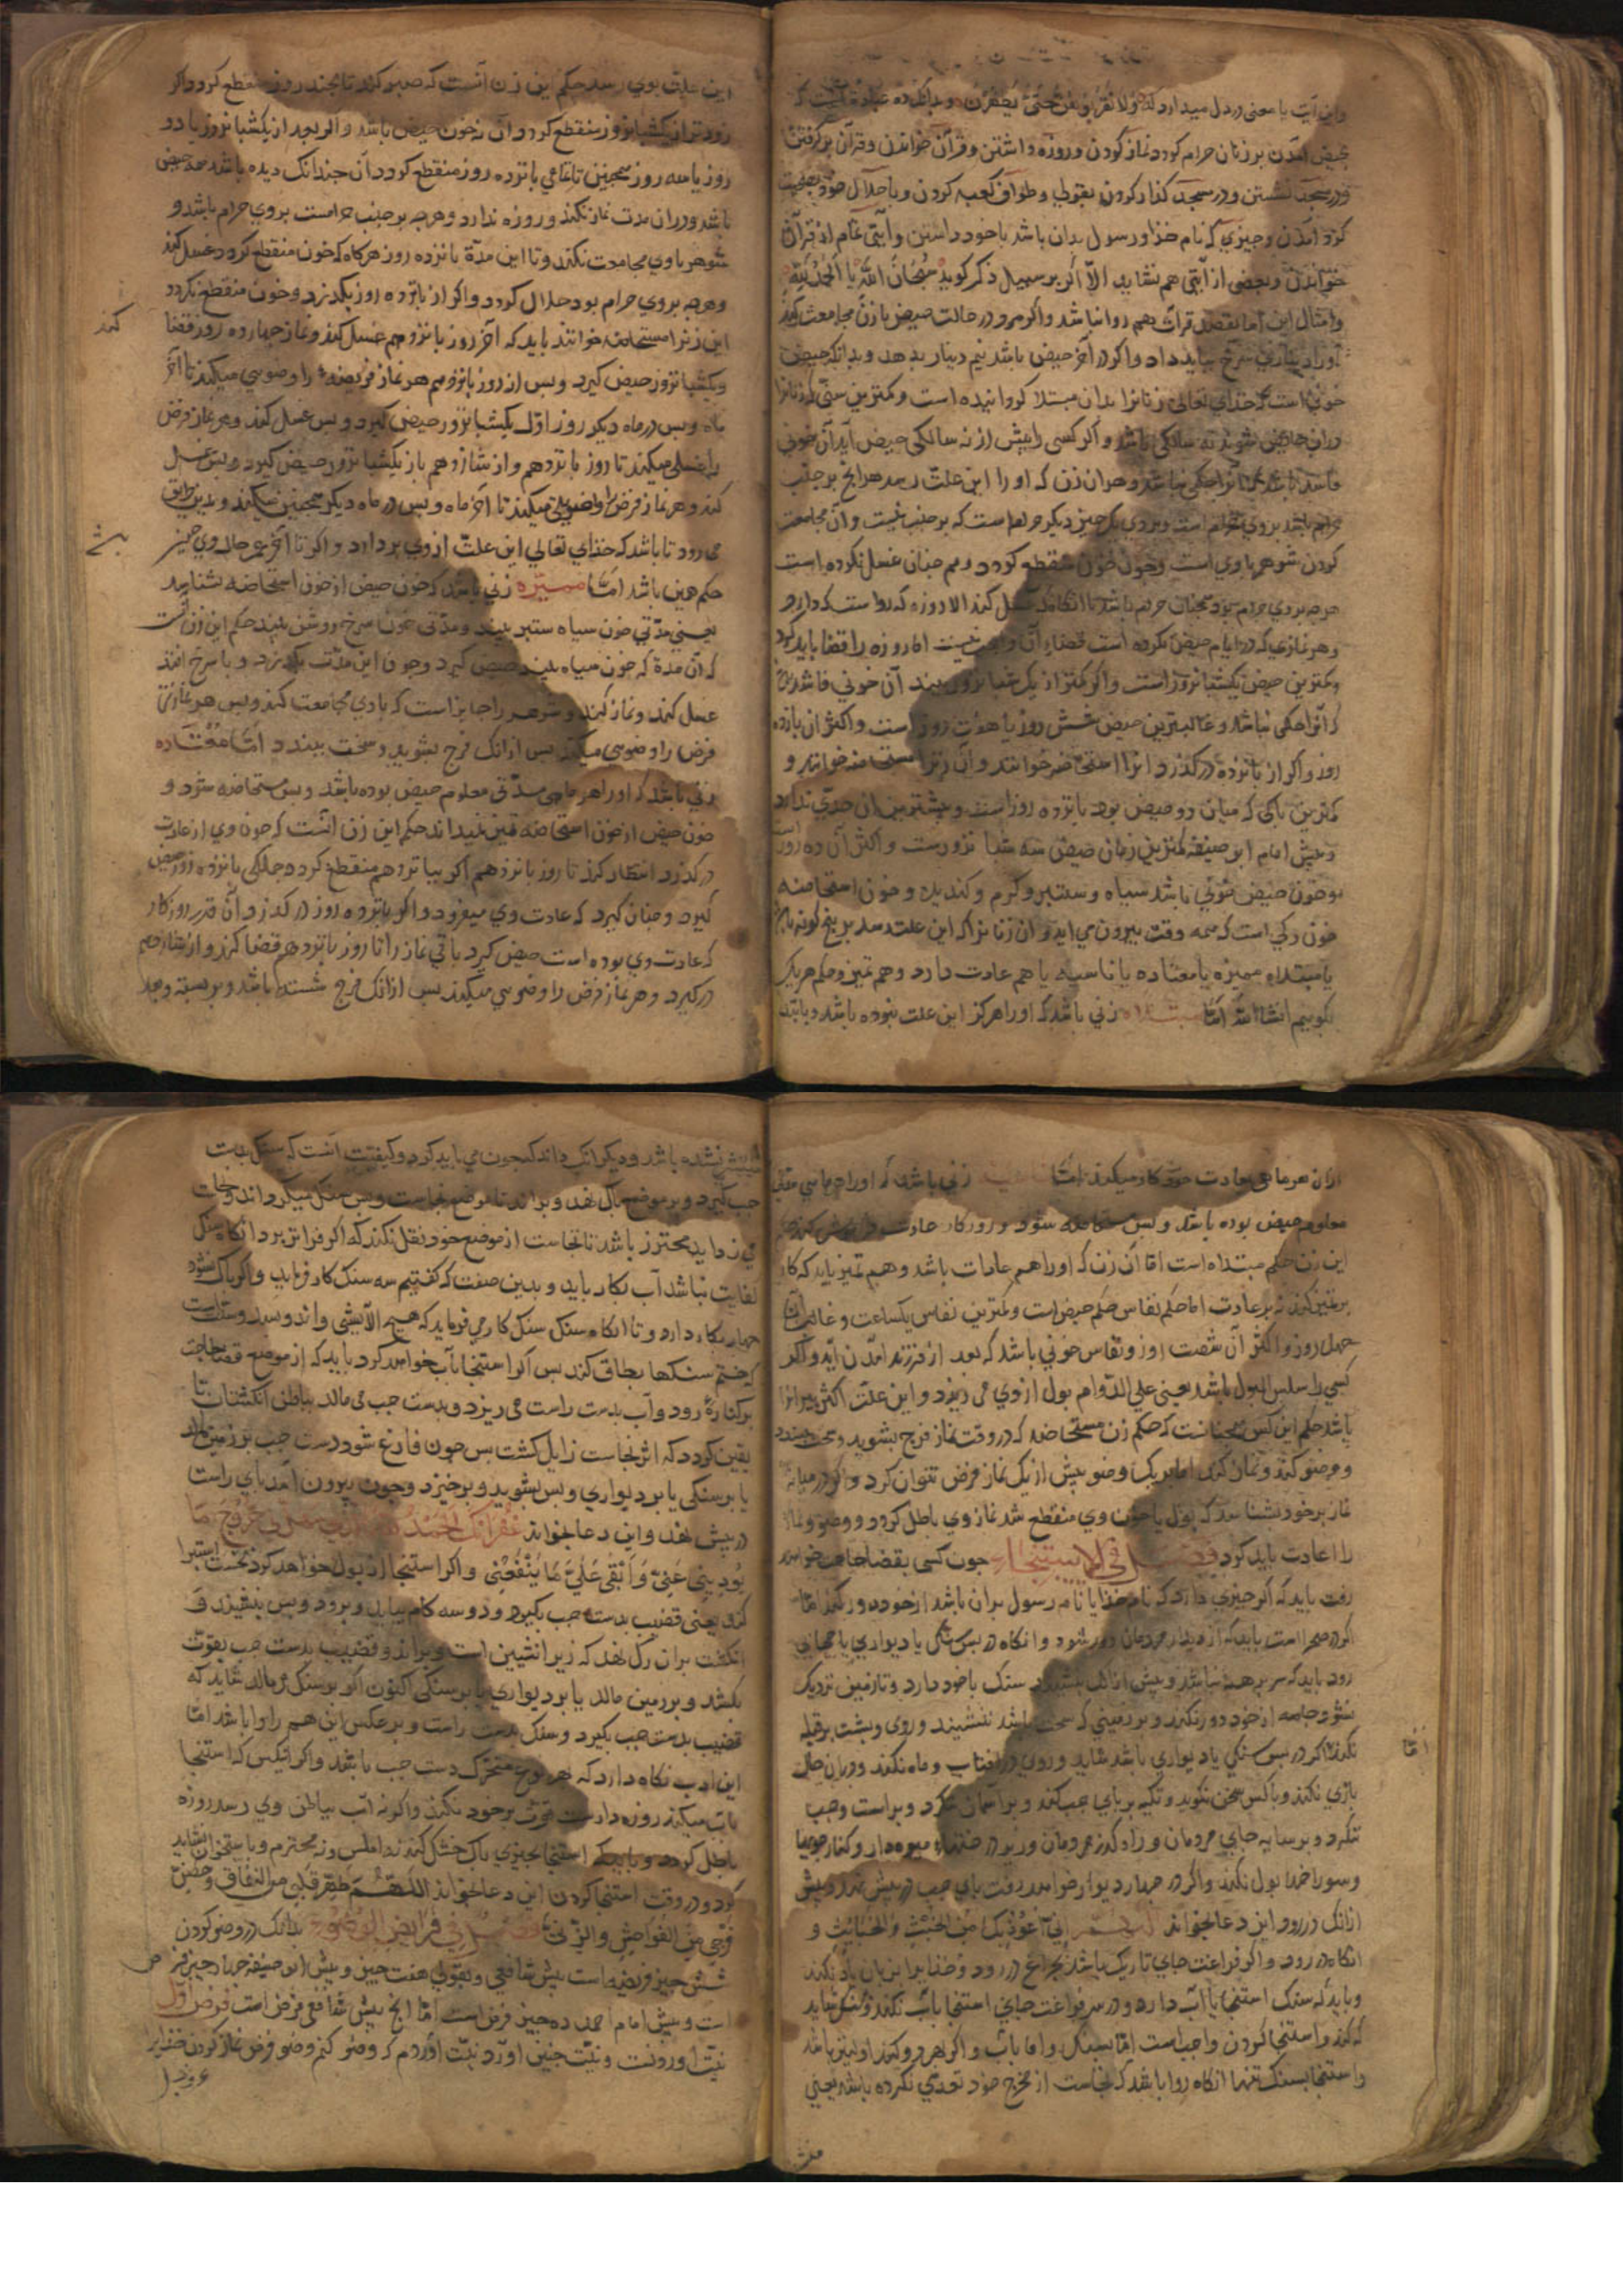 واین آیت با معنی در دل میدارد که وَلا تَقْرَبُوهُنَّ حَتّیٰ یَطْهُرْنَ وبدانک ده عبادة است که
بحیض آمدن بر زنان حرام کردد نماز کردن وروزه داشتن وقرآن خواندن وقرآن بر کرفتن
ودر مسجد نشستن ودر مسجد کذار کردن بقولی وطواف کعبه کردن وبا حلال خود بصحبت
کرد آمدن وجیزی که نام خذا ورسول بدان باشد با خود داشتن وآیتی تمام از قرآن
خواندن وبعضی از آیتی هم نشاید الّا اکر بر سبیل ذکر کوید سُبْحَانَ اللّٰه یا الْحَمْدُ لِلّٰه
وامثال این اما بقصد قرات هم روا نباشد واکر مرد در حالت حیض با زن مجامعت کند
اورا دیناری سرخ بباید داد واکر در آخر حیض باشد نیم دینار بدهد وبدانک حیض
خونی است که خدای تعالی زنانرا بدان مبتلا کردانیده است وکمترین سنّی که زنانرا
دران حایض شوند نه سالکی باشد واکر کسی را پیش از نه سالکی حیض آید آن خونی
فاسد باشد وآنرا حکمی نباشد وهر آن زن که او را این علت رسد هرانج بر جنب
حرام باشد بروی حرام است وبروی یک جیز دیکر حرام است که بر جنب نیست وآن مجامعت
کردن شوهر باوی است وجون خون منقطع کردد وهم جنان غسل نکرده است
هرجه بروی حرام بود همجنان حرام باشد تا آنکاه که غسل کند الا روزه که رواست که دارد
وهر نمازی که در ایام حیض نکرده است قضاء آن واجب نیست اما روزه را قضا باید کرد
وکمترین حیض یکشبانروز است واکر کمتر از یک شبانروز بیند آن خونی فاسد
که آنرا حکمی نباشد وغالبترین حیض شش روز یا هفت روز است واکثر آن پانزده
روز واکر از پانزده در کذرد آنرا استحاضه خوانند وآن زنرا مستحاضه خوانند و
کمترین باکی که میان دو حیض بود پانزده روز است وبیشترین آن حدّی ندارد
وبیش امام ابوحنیفه کمترین زمان حیض سه شبانروزست واکثر آن ده روز است
وخون حیض خونی باشد سیاه وستبر وکرم وکندیده وخون استحاضه
خون رکی است که همه وقت بیرون می آید وآن زنانرا که این علت رسد بر پنج کونه باشد
یا مبتداه ممیزه یا معتاده یا ناسیه یا هم عادت دارد وهم تمیز وحکم هر یک
بکوییم انشا الله امّا مبتداه زنی باشد که اورا هرکز این علت نبوده باشد وباید
این علت بوی رسد حکم این زن آنست که صبر کند تا بجند روز منقطع کردد اکر
زودتر از یکشبانروز منقطع کردد آن نه خون حیض باشد واکر بعد از یکشبانروز یا دو
روز یا سه روز همجنین تا تمامی پانزده روز منقطع کردد آن جندانک دیده باشد همه حیض
باشد ودران مدت نماز نکند وروزه ندارد وهرجه بر جنب حرامست بروی حرام باشد و
شوهر باوی مجامعت نکند وتا این مدّة پانزده روز هرکاه که خون منقطع کردد غسل کند
وهرجه بروی حرام بود حلال کردد واکر از پانزده روز بکذرد وخون منقطع نکردد
این زنرا مستحاضه خوانند باید که آخر روز پانزدهم غسل کند ونماز جهارده روز قضا کند
ویکشبانروز حیض کیرد وبس از روز پانزدهم هر نماز فریضه را وضوی میکند تا آخر
ماه وبس در ماه دیکر روز اوّل یکشبانروز حیض کیرد وبس غسل کند وهر نماز فرض
را غسلی میکند تا روز پانزدهم واز شانزدهم باز یکشبانروز حیض کیرد وبس غسل
کند وهر نماز فرض را وضوی میکند تا آخر ماه وبس در ماه دیکر همجنین میکند وبدین طریق
می رود تا باشد که خذای تعالی این علت از وی بردارد واکر تا آخر عمر حال وی همین
حکم همین باشد امّا ممیّزه زنی باشد که خون حیض از خون استحاضه بشناسد
یعنی مدّتی خون سیاه ستبر بیند ومدّتی خون سرخ وروشن بیند حکم این زن آنست
که آن مدة که خون سیاه بیند حیض کیرد وجون این مدّت بکذرد وبا سرخ افتد
غسل کند ونماز کند وشوهر را جایز است که باوی مجامعت کند وبس هر نمازی
فرض را وضوی میکند بس ازانک فرج بشوید وسخت ببندد امّا معتاده
زنی باشد که اورا هر ماهی مدّتی معلوم حیض بوده باشد وبس مستحاضه شود و
خون حیض از خون استحاضه تمیز نمیداند حکم این زن آنست که جون وی از عادت
در کذرد انتظار کند تا روز پانزدهم اکر بپانزدهم منقطع کردد جملکی پانزده روز حیض
کیرد وجنان کیرد که عادت وی میفزود واکر پانزده روز در کذرد آن قدر روزکار
که عادت وی بوده است حیض کیرد باقی نماز را تا روز پانزدهم قضا کند واز شانزدهم
در کیرد وهر نماز فرض را وضوی میکند بس ازانک فرج شسته باشد وبر بسته وبعد
ازان هر ماهی بعادت خود کار میکند امّا زنی باشد که اورا هر ماهی مدتی
معلوم حیض بوده باشد وبس مستحاضه شود وروزکار عادت فراموش کند حکم
این زن حکم مبتداه است امّا آن زن که اورا هم عادات باشد وهم تمیز باید که کار
بر تمیز کند نه بر عادت اما حکم نفاس حکم حیض است وکمترین نفاس یکساعت وغالب آن
جهل روز واکثر آن شصت روز ونفاس خونی باشد که بعد از فرزند آمدن آید واکر
کسی را سلس البول باشد یعنی علی الدّوام بول ازوی می ریزد واین علّت اکثر پیرانرا
باشد حکم این کس همجنانست که حکم زن مستحاضه که در وقت نماز فرج بشوید وسخت ببندد
ووضو کند ونماز کند اما بیک وضو بیش از یک نماز فرض نتوان کرد واکر در میانه
نماز بر خود بشناسد که بول یا خون وی منقطع شد نماز وی باطل کردد ووضو ونماز
را اعادت باید کرد فصل فی الاستنجاء جون کسی بقضا حاجت خواهد
رفت باید که اکر جیزی دارد که نام خذا یا نام رسول بران باشد از خود دور کند امّا
اکر در صحرا است باید که از دیدار مردمان دور شود وانکاه در بس تلی یا دیواری یا حجابی
رود باید که سر برهنه نباشد وپیش ازانک بنشیند سنک با خود دارد وتا زمین نزدیک
نشود جامه از خود دور نکند وبر زمینی که سخت باشد ننشیند وروی وبشت بر قبله
نکند مکر در بس سنکی یا دیواری باشد شاید وروی در آفتاب وماه نکند ودران حال
بازی نکند وبا کس سخن نکوید وتکیه بر پای جب کند وبر آسمان ننکرد وبراست وجب
ننکرد وبر سایه جای مردمان وراه کذر مردمان ودر زیر درختهاء میوه دار وکنار جویها
وسوراخها بول نکند واکر در جهار دیوار خواهد رفت پای جب در پیش نهد وبیش
ازانک در رود این دعا بخواند اِنّی اَعُوذُ بِکَ مِنَ الْخُبُثِ وَالْخَبَائِثِ و
انکاه در رود واکر فراغت جای تاریک باشد بجراغ در رود وخذایرا بزبان یاد نکند
وباید که سنک استنجا یا آب دارد ودر سر فراغت جای استنجا بآب نکند وبسنک شاید
که کند واستنجا کردن واجب است امّا بسنک واما بآب واکر بهر دو کند اولیتر باشد
واستنجا بسنک تنها آنکاه روا باشد که نجاست از مخرج خود تعدّی نکرده باشد یعنی
بیشتر نشده باشد ودیکر آنک داند که جون می باید کرد وکیفیّت آنست که سنک بدست
جب کیرد وبر موضع باک نهد وبراند تا موضع نجاست وبس سنک میکرداند ونجات
می زداید محترز باشد تا نجاست از موضع خود نقل نکند که اکر فراتر برد آنکاه سنک
کفایت نباشد آب بکار باید وبدین صفت که کفتیم سه سنک کار فرماید واکر باک نشود
جهار بکار دارد وتا آنکاه سنک کار می فرماید که هیچ آلایشی واندوه نبود وسنت است
که ختم سنکها بطاق کند بس اکر استنجا بآب خواهد کرد باید که از موضع قضا حاجت
بر کنارۀ رود وآب بدست راست می ریزد وبدست جب می مالد بباطن انکشتان تا
یقین کردد که اثر نجاست زایل کشت بس جون فارغ شود دست جب بر زمین مالد
یا بر سنکی یا بر دیواری وبس بشوید وبرخیزد وجون بیرون آمد پای راست
در پیش نهد واین دعا بخواند غُفْرَانَکَ اَلْحَمْدُ
یُوذِینِی عَنّی وَاَبْقیٰ عَلَیَّ مَا یَنْفَعُنِی واکر استنجا از بول خواهد کرد نخست استبرا
کند یعنی قضیب بدست جب بکیرد ودو سه کام بیاید وبرود وبس بنشیند و
انکشت بران رک نهد که زیر انثیین است وبراند وقضیب بدست جب بقوت
بکشد وبر زمین مالد یا بر دیواری یا بر سنکی اکنون اکر بر سنک مالد شاید که
قضیب بدست جب بکیرد وسنک بدست راست وبر عکس این هم روا باشد امّا
این ادب نکاه دارد که متحرک دست جب باشد واکر آنکس که استنجا
بآب میکند روزه دارست قوت بر خود نکند واکر نه آب بباطن وی رسد روزه
باطل کردد وباید که استنجا بجیزی باک خشک کند نه املس ونه محترم وباستخوان نشاید
کرد ودر وقت استنجا کردن این دعا بخواند اللّٰهُمَّ طَهِّرْ قَلْبِی مِنَ النِّفَاقِ وحَصِّنْ
فَرْجِی مِنَ الْفَوَاحِشِ وَالزِّنیٰ فصل فی فرایض الوضوء بدانک در وضو کردن
شش جیز فریضه است بیش شافعی وبقولی هفت جیز وبیش ابوحنیفه جهار جیز فرض
است وبیش امام احمد ده جیز فرض است امّا انج بیش شافعی فرض است فرض اوّل
نیّت آوردنست ونیّت جنین آورد نیّت آوردم که وضو کنم وضو فرض نماز کردن خذایرا
عزوجل